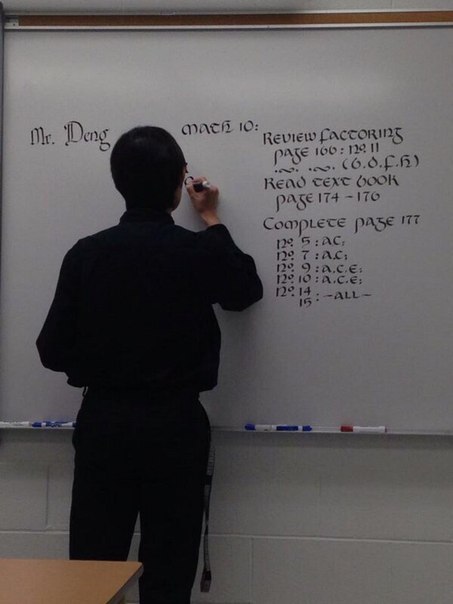 Mr. Deng
Math 10:
Review factoring
page 166: no. 11
(b.d.f.h)
Read text book
page 174 - 176
Complete page 177
no. 5: a.c;
no. 7: a.c;
no. 9: a.c.e;
no. 10: a.c.e;
no. 14
15: -all-